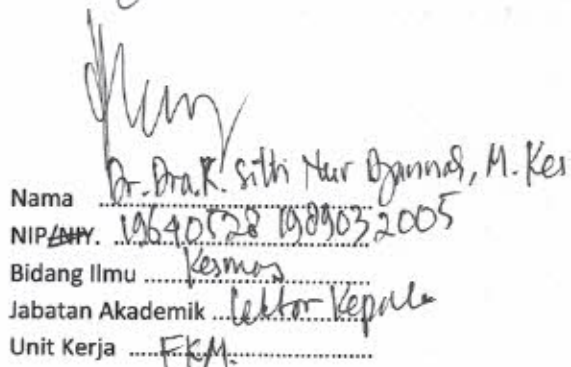 Nama Dr. Dra. R. Sitti Nur Djannah, M. Kes
NIP/NIY. 19640528 198903 2005
Bidang Ilmu Kesmas
Jabatan Akademik Lektor Kepala
Unit Kerja FKM.